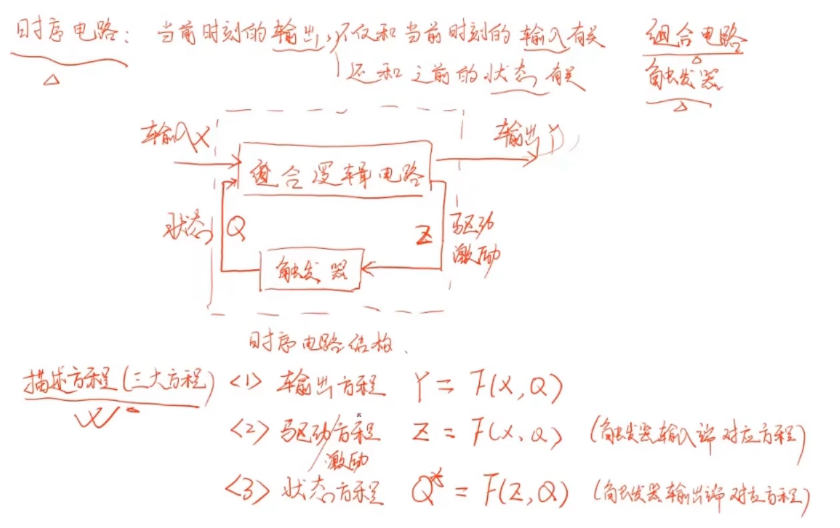 时序电路: 当前时刻的输出,不仅和当前时刻的输入有关 组合电路
还和之前的状态有关 触发器
输入X 输出Y
组合逻辑电路
状态 Q Z 驱动
激励
触发器
时序电路结构.
描述方程(三大方程) <1> 输出方程 Y = F(X, Q)
<2> 驱动方程 Z = F(X, Q) (触发器输入端对应方程)
/激励
<3> 状态方程 Q* = F(Z, Q) (触发器输出端对应方程)